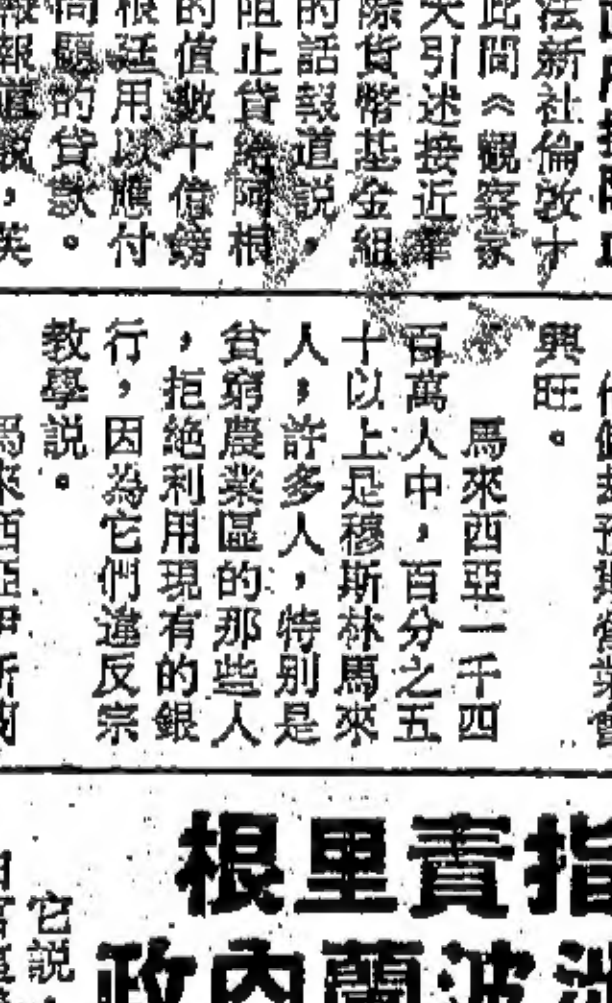 法新社倫敦十
此間《觀察家
大引述接近華
際貨幣基金組
的話報道說。
阻止貸給阿根
的值數十億鎊
根廷用以應付
問題的貸款。
興旺。
馬來西亞一千四
百萬人中，百分之五
十以上是穆斯林馬來
人，許多人，特別是
貧窮農業區的那些人
，拒絕利用現有的銀
行，因為它們違反宗
教學說。
馬來西亞伊斯蘭
指責里根
波蘭內政
它說